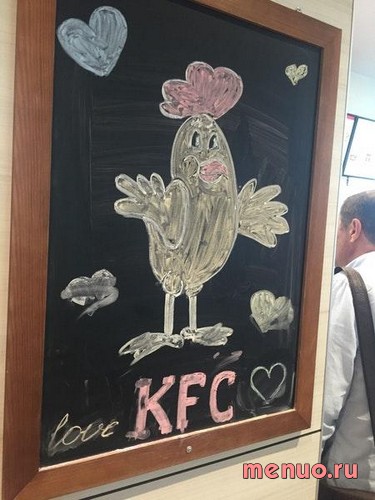 love KFC
menuo.ru